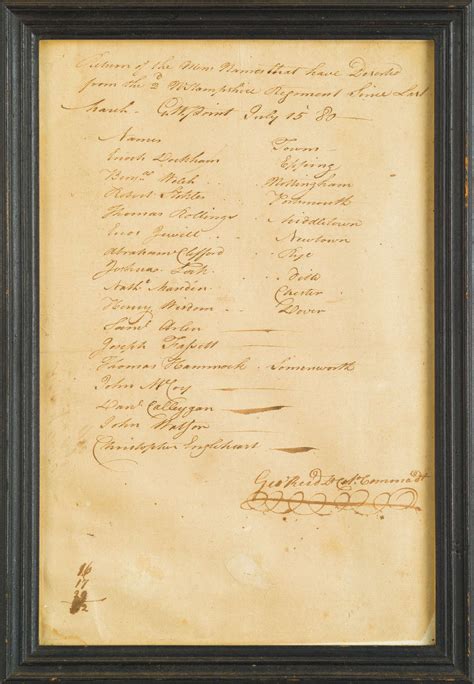 Return of the Mens Names that have Deserted
from the 2d N Hampshire Regiment Since Last
March - West Point July 15 80 -
Names Towns
Enoch Epping
Benjn. Welch Nottingham
Robert Portsmouth
Thomas Rollings Middletown
Enos Jewill Newtown
Abraham Clifford Rye
Joshua Ditto
Nathl. Marden Chester
Henry Wisdom Dover
Saml. Arlin
Joseph Fassett
Thomas Hammock Somersworth
John McCoy
Danl. Calleygan
John Watson
Christopher Engleheart
Geo Reed Lt Col. Commadt
16
17